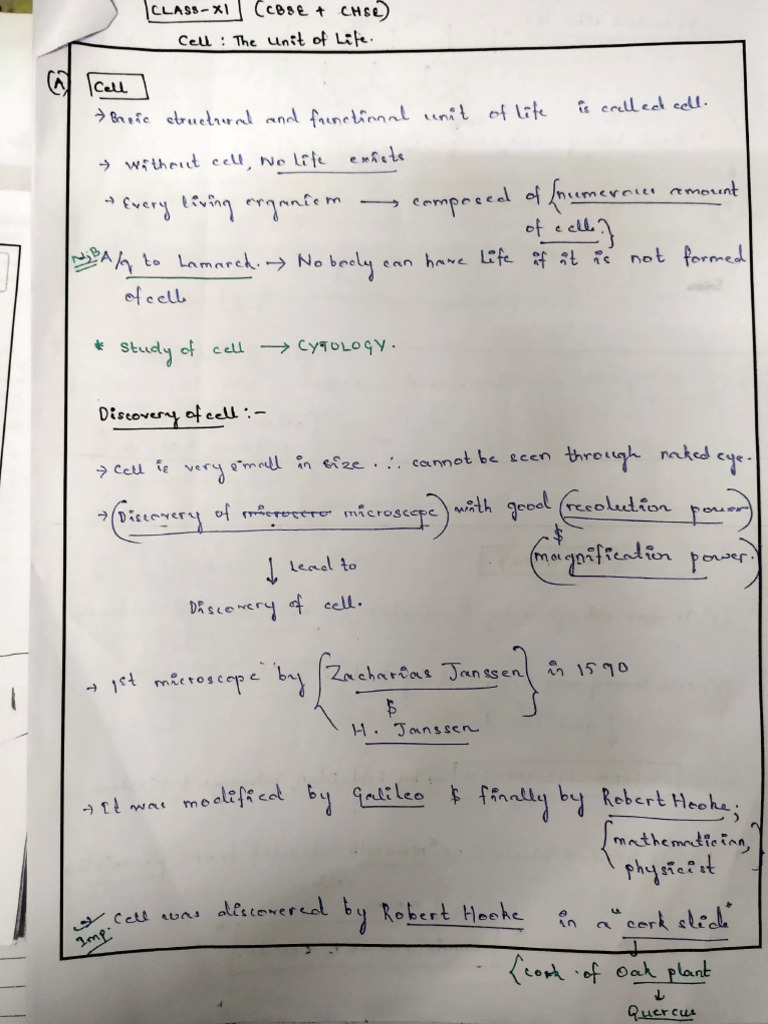 CLASS-XI (CBSE + CHSE)
Cell : The Unit of Life.
(A) Cell
→ Basic structural and functional unit of life is called cell.
→ without cell, No life exists
→ Every living organism → composed of {numerous amount
of cells}
N:B A/q to Lamarck. → Nobody can have Life if it is not formed
of cells
* Study of cell → CYTOLOGY.
Discovery of cell :-
→ Cell is very small in size. ∴ cannot be seen through naked eye.
→ (Discovery of microscope) with good (resolution power)
$
(magnification power.)
↓ Lead to
Discovery of cell.
→ 1st microscope by {Zacharias Janssen} in 1590
$
H. Janssen
→ It was modified by Galileo $ finally by Robert Hooke;
{mathematician,
physicist
→ Cell was discovered by Robert Hooke in a "cork slide"
Imp.
↓
{cork of oak plant
↓
Quercus